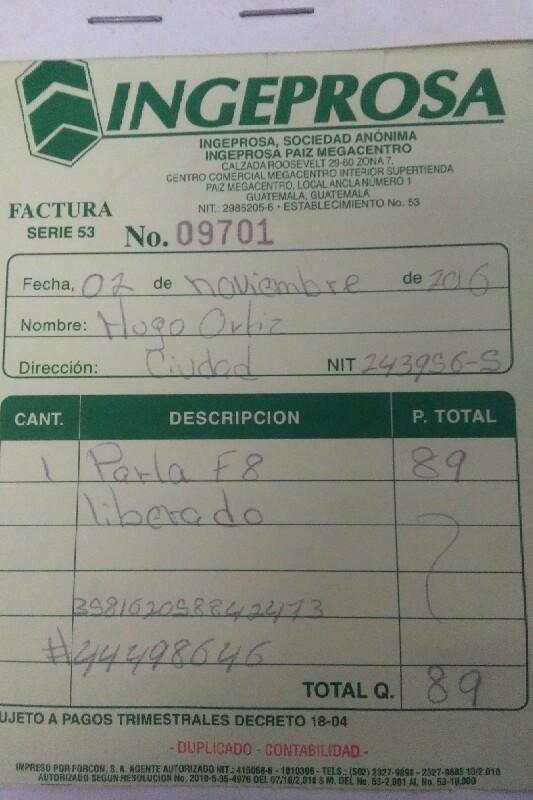 INGEPROSA
INGEPROSA, SOCIEDAD ANÓNIMA
INGEPROSA PAIZ MEGACENTRO
CALZADA ROOSEVELT 29-60 ZONA 7,
CENTRO COMERCIAL MEGACENTRO INTERIOR SUPERTIENDA
PAIZ MEGACENTRO, LOCAL ANCLA NUMERO 1
GUATEMALA, GUATEMALA
NIT.: 2985205-6 • ESTABLECIMIENTO No. 53
FACTURA
SERIE 53 No. 09701
Fecha, 02 de noviembre de 2016
Nombre: Hugo Ortiz
Dirección: Ciudad NIT 243956-5
CANT. DESCRIPCION P. TOTAL
1 Parla F8 89
liberado
358162058842473
#44498646
TOTAL Q. 89
UJETO A PAGOS TRIMESTRALES DECRETO 18-04
- DUPLICADO - CONTABILIDAD -
IMPRESO POR FORCON, S. A. AGENTE AUTORIZADO NIT.: 415068-6 - TELS.: (502) 2327-9898 -
AUTORIZADO SEGUN RESOLUCION No.